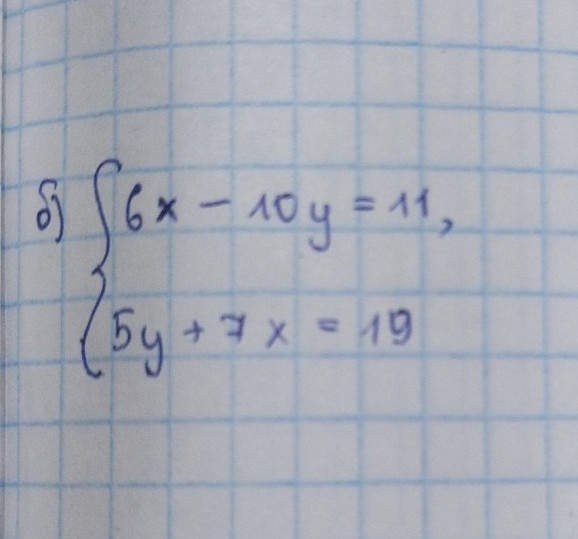 б) { 6x - 10y = 11,
5y + 7x = 19